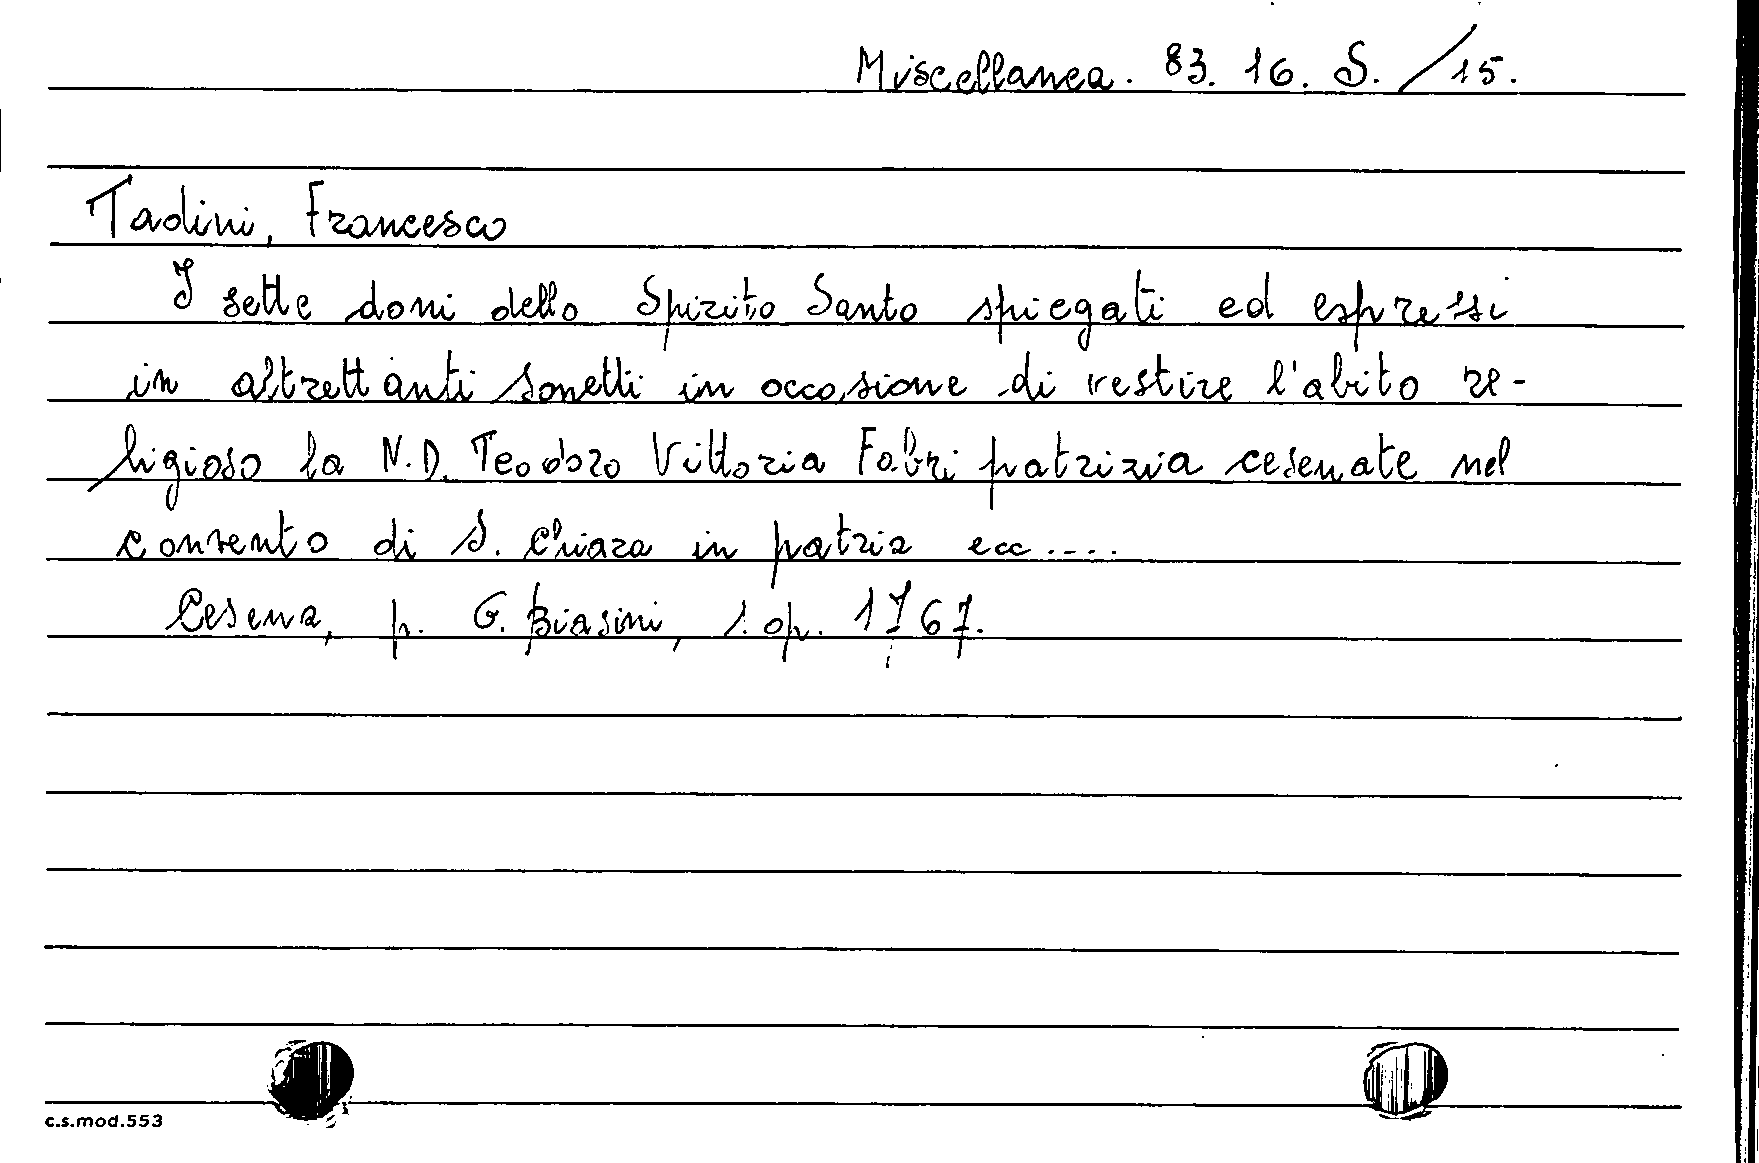 Miscellanea. 83. 16. S. /15.
Tadini, Francesco
I sette doni dello Spirito Santo spiegati ed espressi
in altrettanti sonetti in occasione di vestire l'abito re-
ligioso la N.D. Teodoro Vittoria Fabri patrizia cesenate nel
convento di S. Chiara in patria ecc....
Cesena, p. G. Biasini, s. op. 1767.
c.s.mod.553